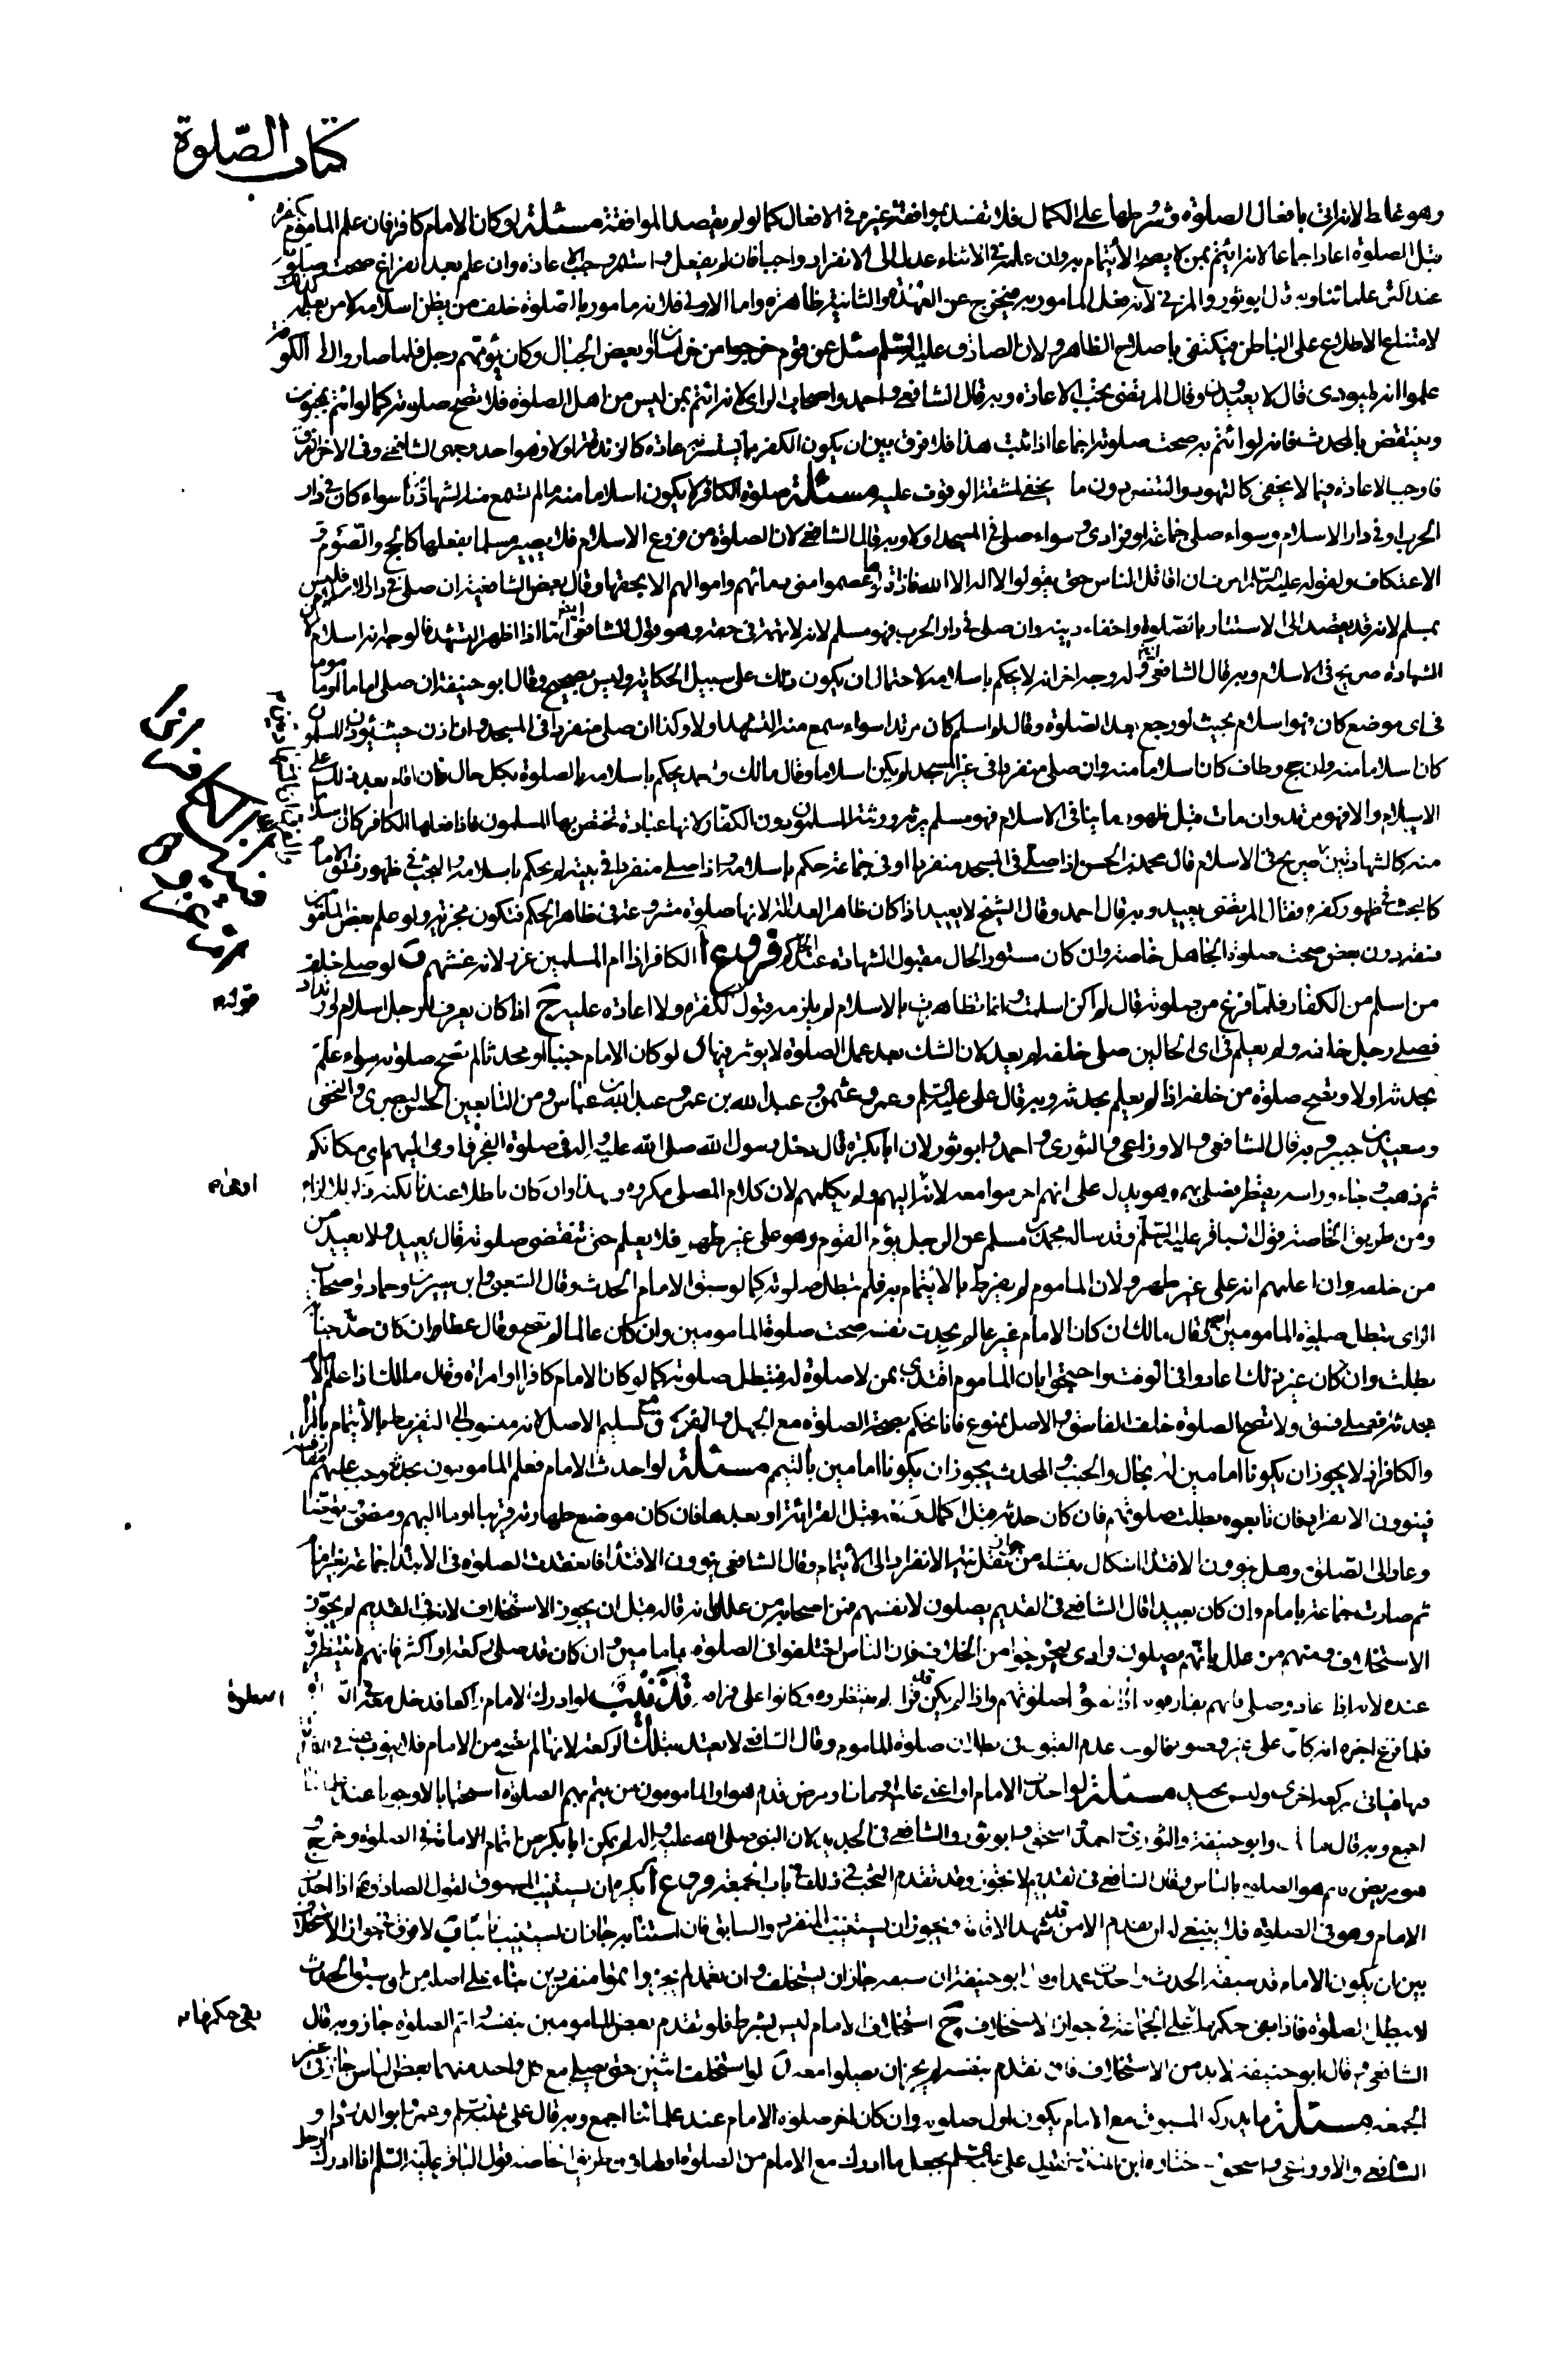 كتاب الصّلوة
وهو غلط لانه اتى بافعال الصلوة وشروطها على الكمال فلا تفسد بموافقة غيره في الافعال كما لو لم يقصد الموافقة مسئلة لو كان الامام كافرا فان علم الماموم بكفره
قبل الصلوة اعاد اجماعا لانه ائتم بمن لا يصح الائتمام به وان علم في الاثناء عدل الى الانفراد واجبا فان لم يفعل واستمر وجب الاعادة وان علم بعد الفراغ صحت صلوته
عند اكثر علمائنا وبه قال ابو ثور والمزني لانه فعل المامور به فيخرج عن العهدة والثانية ظاهرة واما الاولى فلانه مامور بالصلوة خلف من يظن اسلامه لا من يعلمه
لامتناع الاطلاع على الباطن فيكتفى باصلاح الظاهر ولان الصادق عليه السلم سئل عن قوم خرجوا من خراسان او بعض الجبال وكان يؤمهم رجل فلما صاروا الى الكوفة
علموا انه يهودى قال لا يعيدون وقال المرتضى تجب الاعادة وبه قال الشافعي واحمد واصحاب الراى لانه ائتم بمن ليس من اهل الصلوة فلا تصح صلوته كما لو ائتم بمجنون
وينتقض بالمحدث فانه لو ائتم به صحت صلوته اجماعا اذا ثبت هذا فلا فرق بين ان يكون الكفر مما يستسر به عادة كالزندقة او لا وهو احد وجهى الشافعي وفي الاخر الفرق
فاوجب الاعادة فيما لا يخفى كالتهود والتنصر دون ما يخفى لمشقة الوقوف عليه مسئلة صلوة الكافر لا يكون اسلاما منه ما لم تسمع منه الشهادتان سواء كان في دار
الحرب او في دار الاسلام وسواء صلى جماعة او فرادى وسواء صلى في المسجد او لا وبه قال الشافعي لان الصلوة من فروع الاسلام فلا يصير مسلما بفعلها كالحج والصوم و
الاعتكاف ولقوله عليه السلم امرت ان اقاتل الناس حتى يقولوا لا اله الا الله فاذا قالوها عصموا منى دمائهم واموالهم الا بحقها وقال بعض الشافعية ان صلى في دار الاسلام فليس
بمسلم لانه قد يقصد الى الاستتار بالصلوة واخفاء دينه وان صلى في دار الحرب فهو مسلم لانه لا تهمة في حقه وهو قول للشافعي ايضا اما اذا اظهر التشهد فالوجه انه اسلام لان
الشهادة صريح في الاسلام وبه قال الشافعي وله وجه اخر انه لا يحكم باسلامه لاحتمال ان يكون ذلك على سبيل الحكاية وليس بصحيح وقال ابو حنيفة ان صلى اماما او ماموما
في اى موضع كان فهو اسلام بحيث لو رجع بعد الصلوة وقال لم اسلم كان مرتدا سواء سمع منه التشهد او لا وكذا ان صلى منفردا في المسجد وان اذن حيث يؤذن المسلمون
كان اسلاما منه وان حج وطاف كان اسلاما منه وان صلى منفردا في غير المسجد لم يكن اسلاما وقال مالك واحمد يحكم باسلامه بالصلوة بكل حال فان اقام بعد ذلك على
الاسلام والا فهو مرتد وان مات قبل ظهور ما ينافى الاسلام فهو مسلم يرثه ورثته المسلمون دون الكفار لانها عبادة تختص بها المسلمون فاذا فعلها الكافر كان اسلاما
منه كالشهادتين صريح في الاسلام قال محمد بن الحسن اذا صلى في المسجد منفردا او في جماعة حكم باسلامه واذا صلى منفردا في بيته لم يحكم باسلامه والبحث في ظهور فسق الامام
كالبحث في ظهور كفره فقال المرتضى يعيد وبه قال احمد وقال الشيخ لا يعيد اذا كان ظاهره العدالة لانها صلوة مشروعة في ظاهر الحكم فتكون مجزئة ولو علم بعض المامومين
فسقه دون بعض صحت صلوة الجاهل خاصة وان كان مستور الحال مقبول الشهادة عند الحاكم فروع ا الكافر اذا ام المسلمين عزر لانه غشهم ب لو صلى خلف
من اسلم من الكفار فلما فرغ من صلوته قال لم اكن اسلمت وانما تظاهرت بالاسلام لم يلزمه قبول لكفره ولا اعادة عليه ج اذا كان يعرف لرجل اسلام وارتداد
فصلى رجل خلفه ولم يعلم في اى الحالين صلى خلفه لم يعد لان الشك بعد عمل الصلوة لا يؤثر فيها د لو كان الامام جنبا او محدثا لم تصح صلوته سواء علم
بحدثه او لا وتصح صلوة من خلفه اذا لم يعلم بحدثه وبه قال على عليه السلم وعمر وعثمن وعبد الله بن عمر وعبد الله بن عباس ومن التابعين الحسن البصرى والنخعي
وسعيد بن جبير وبه قال الشافعي والاوزاعي والثورى واحمد وابو ثور لان ابا بكرة قال دخل رسول الله صلى الله عليه واله في صلوة الفجر فاومى اليهم اى مكانكم
ثم ذهب وجاء وراسه يقطر فصلى بهم وهو يدل على انهم احرموا معه لاشارته اليهم ولم يكلمهم لان كلام المصلى مكروه وهذا وان كان باطلا عندنا لكنه ذكر للالزام
ومن طريق الخاصة قول الباقر عليه السلم وقد ساله محمد بن مسلم عن الرجل يؤم القوم وهو على غير طهر فلا يعلم حتى تنقضى صلوته قال يعيد ولا يعيد من
من خلفه وان اعلمهم انه على غير طهر ولان الماموم لم يفرط بالائتمام به فلم تبطل صلوته كما لو سبق الامام الحدث وقال الشعبي وابن سيرين وحماد واصحاب
الراى تبطل صلوة المامومين وقال مالك ان كان الامام غير عالم بحدث نفسه صحت صلوة المامومين وان كان عالما لم تصح وقال عطا وان كان حدثه جنابة
بطلت وان كان غير ذلك اعادوا في الوقت واحتجوا بان الماموم اقتدى بمن لا صلوة له فتبطل صلوته كما لو كان الامام كافرا او امراة وقال مالك اذا علم الامام
بحدثه فصلى فسق ولا تصح الصلوة خلف الفاسق والاصل ممنوع فانا نحكم بصحة الصلوة مع الجهل والفرق مع تسليم الاصل انه منسوب الى التفريط بالائتمام بالمراة
والكافر اذ لا يجوز ان يكونا امامين بحال والجنب والمحدث يجوز ان يكونا امامين بالتيمم مسئلة لو احدث الامام فعلم المامومون بحدثه وجب عليهم مفارقته
فينوون الانفراد فان تابعوه بطلت صلوتهم فان كان حدثه قبل اكمال قبل القرائة او بعدها فان كان موضع طهارته قريبا اوما اليهم ومضى يتوضا
وعاد الى الصلوة وهل ينوون الاقتداء اشكال ينشاء من جواز نقل نية الانفراد الى الائتمام وقال الشافعي ينوون الاقتداء فانعقدت الصلوة في الابتداء جماعة بغير امام
ثم صارت جماعة بامام وان كان بعيدا قال الشافعي في القديم يصلون لانفسهم فمن اصحابه من علل انه قاله قبل ان يجوز الاستخلاف لانه في القديم لم يجوز
الاستخلاف ومنهم من علل بانهم يصلون فرادى ليخرجوا من الخلاف فان الناس اختلفوا في الصلوة بامامين وان كان قد صلى ركعة او اكثر فانهم لا ينتظرونه
عنده لانه اذا عاد وصلى فانهم يفارقونه اذا تموا صلوتهم واذا لم يكن لم ينتظروه وكانوا على فراقه تذنيب لو ادرك الامام راكعا فدخل معه في الصلوة
فلما فرغ اخبره انه كان على غير وضوء عدم بطلان صلوة الماموم وقال الشافعي لا يعتد بتلك الركعة لانها لم تصح من الامام فلا ينوب عنه في القرائة
فيها فياتى بركعة اخرى وليس بجيد مسئلة لو احدث الامام او اغمى عليه او مات او مرض قدم هو او المامومون من يتم بهم الصلوة استحبابا لا وجوبا عند علمائنا
اجمع وبه قال مالك وابو حنيفة والثورى واحمد واسحق وابو ثور والشافعي في الجديد لان النبى صلى الله عليه واله لم يمكن ابا بكر من اتمام الامامة في الصلوة وخرج و
هو مريض فاتم هو الصلوة بالناس وقال الشافعي في القديم لا يجوز وقد تقدم البحث في ذلك في باب الجمعة فروع ا يكره ان يستنيب المسبوق لقول الصادق عليه السلم اذا احدث
الامام وهو في الصلوة فلا ينبغي له ان يقدم الا من قد شهد الاقامة ويجوز ان يستنيب المنفرد والسابق فان استنابه جاز ان يستنيب نائبا ب لا فرق في جواز الاستخلاف
بين ان يكون الامام قد سبقه الحدث او احدث عمدا وقال ابو حنيفة ان سبقه جاز ان يستخلف وان تعمد لم يجز واتموا منفردين بناء على اصله من ان سبق الحدث
لا يبطل الصلوة فاذا بقى حكمها على الجماعة في جواز الاستخلاف ج استخلاف الامام ليس بشرط فلو تقدم بعض المامومين بنفسه واتم الصلوة جاز وبه قال
الشافعي وقال ابو حنيفة لابد من الاستخلاف فان تقدم بنفسه لم يجز ان يصلوا معه د لو استخلف اثنين حتى يصلى مع كل واحد منهما بعض الناس جاز في غير
الجمعة مسئلة ما يدركه المسبوق مع الامام يكون اول صلوته وان كان اخر صلوة الامام عند علمائنا اجمع وبه قال على عليه السلم وعمر وابو الدرداء و
الشافعي والاوزاعي واسحق واختاره ابن المنذر لقول على عليه السلم يجعل ما ادرك مع الامام من الصلوة اولها ومن طريق الخاصة قول الباقر عليه السلم اذا ادرك الرجل
قوله م
بقى حكمها م